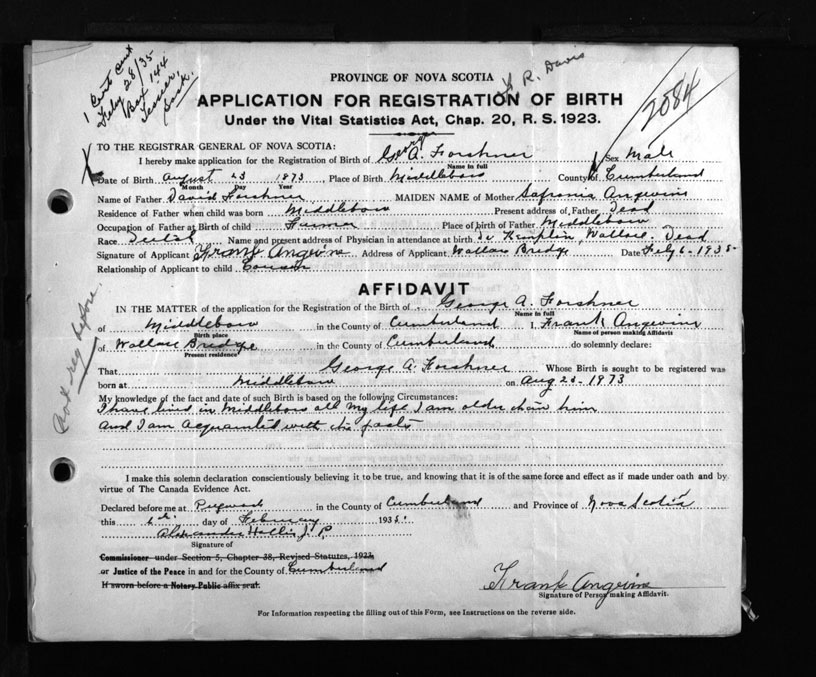 1 Cert sent
Feby 28/35
Box 144
Tessier,
Sask.
R. Davis
2084
PROVINCE OF NOVA SCOTIA
APPLICATION FOR REGISTRATION OF BIRTH
Under the Vital Statistics Act, Chap. 20, R. S. 1923.
TO THE REGISTRAR GENERAL OF NOVA SCOTIA:
I hereby make application for the Registration of Birth of George A. Forshner Sex Male
Name in full
Date of Birth August 23 1873 Place of Birth Middleboro County of Cumberland
Month Day Year
Name of Father David Forshner MAIDEN NAME of Mother Safronia Angevine
Residence of Father when child was born Middleboro Present address of Father Dead
Occupation of Father at Birth of child Farmer Place of birth of Father Middleboro
Race Name and present address of Physician in attendance at birth Wallace. Dead
Signature of Applicant Frank Angevine Address of Applicant Wallace Bridge Date Feby 6 - 1935
Relationship of Applicant to child Cousin
AFFIDAVIT
IN THE MATTER of the application for the Registration of the Birth of George A. Forshner
Name in full
of Middleboro in the County of Cumberland I, Frank Angevine
Birth place Name of person making Affidavit
of Wallace Bridge in the County of Cumberland do solemnly declare:
Present residence
That George A. Forshner Whose Birth is sought to be registered was
born at Middleboro on Aug 23 - 1873
My knowledge of the fact and date of such Birth is based on the following Circumstances:
I have lived in Middleboro all my life I am older than him
and I am acquainted with the facts
Not reg before
I make this solemn declaration conscientiously believing it to be true, and knowing that it is of the same force and effect as if made under oath and by
virtue of The Canada Evidence Act.
Declared before me at Pugwash in the County of Cumberland and Province of Nova Scotia
this day of February 1935.
Alexander Hollis J. P.
Signature of
Commissioner under Section 5, Chapter 38, Revised Statutes, 1923,
or Justice of the Peace in and for the County of Cumberland
If sworn before a Notary Public affix seal.
Frank Angevine
Signature of Person making Affidavit.
For Information respecting the filling out of this Form, see Instructions on the reverse side.